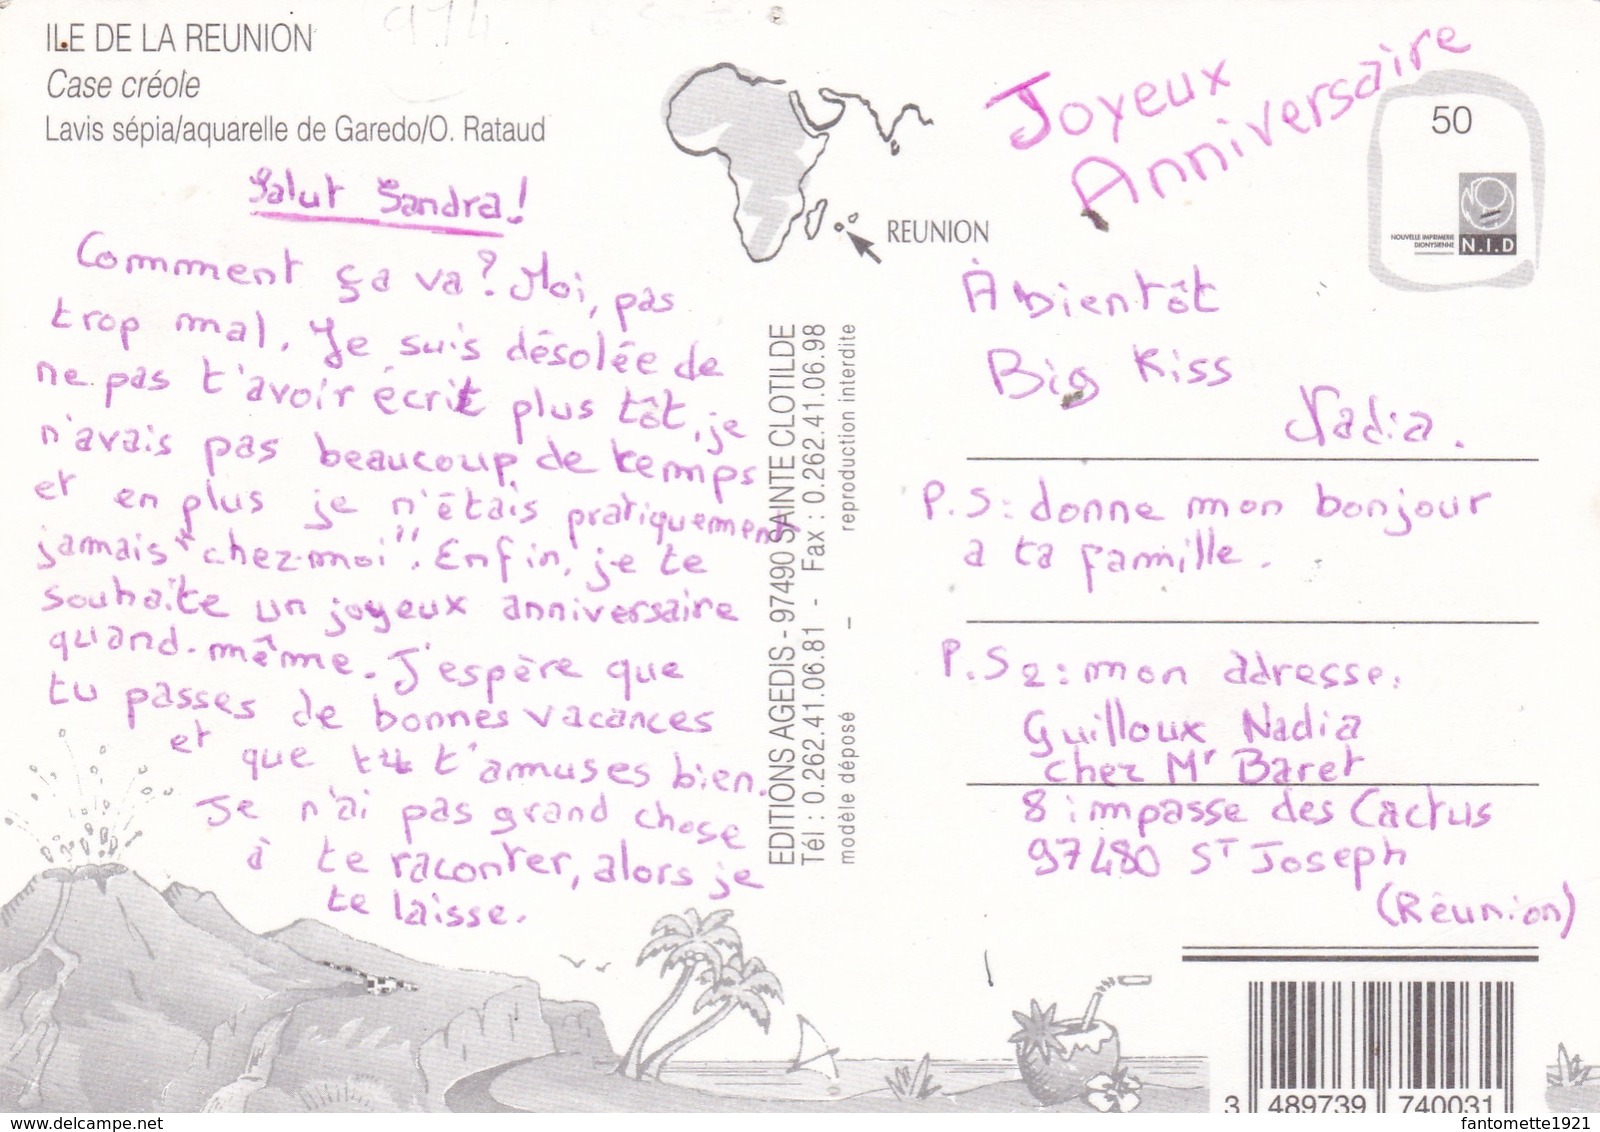 ILE DE LA REUNION
Case créole
Lavis sépia/aquarelle de Garedo/O. Rataud
974
Salut Sandra!
Comment ça va? Moi, pas
trop mal. Je suis désolée de
ne pas t'avoir écrit plus tôt, je
n'avais pas beaucoup de temps
et en plus je n'étais pratiquement
jamais "chez-moi". Enfin, je te
souhaite un joyeux anniversaire
quand-même. J'espère que
tu passes de bonnes vacances
et que tu t'amuses bien.
Je n'ai pas grand chose
à te raconter, alors je
te laisse.
REUNION
EDITIONS AGEDIS - 97490 SAINTE CLOTILDE
Tél : 0.262.41.06.81 - Fax : 0.262.41.06.98
modèle déposé – reproduction interdite
Joyeux
Anniversaire
50
NOUVELLE IMPRIMERIE
DIONYSIENNE
N.I.D
À bientôt
Big Kiss
Nadia.
P.S: donne mon bonjour
a ta famille.
P.S2: mon adresse:
Guilloux Nadia
chez Mr Baret
8 impasse des Cactus
97480 ST Joseph
(Réunion)
3 489739 740031
delcampe.net
fantomette1921